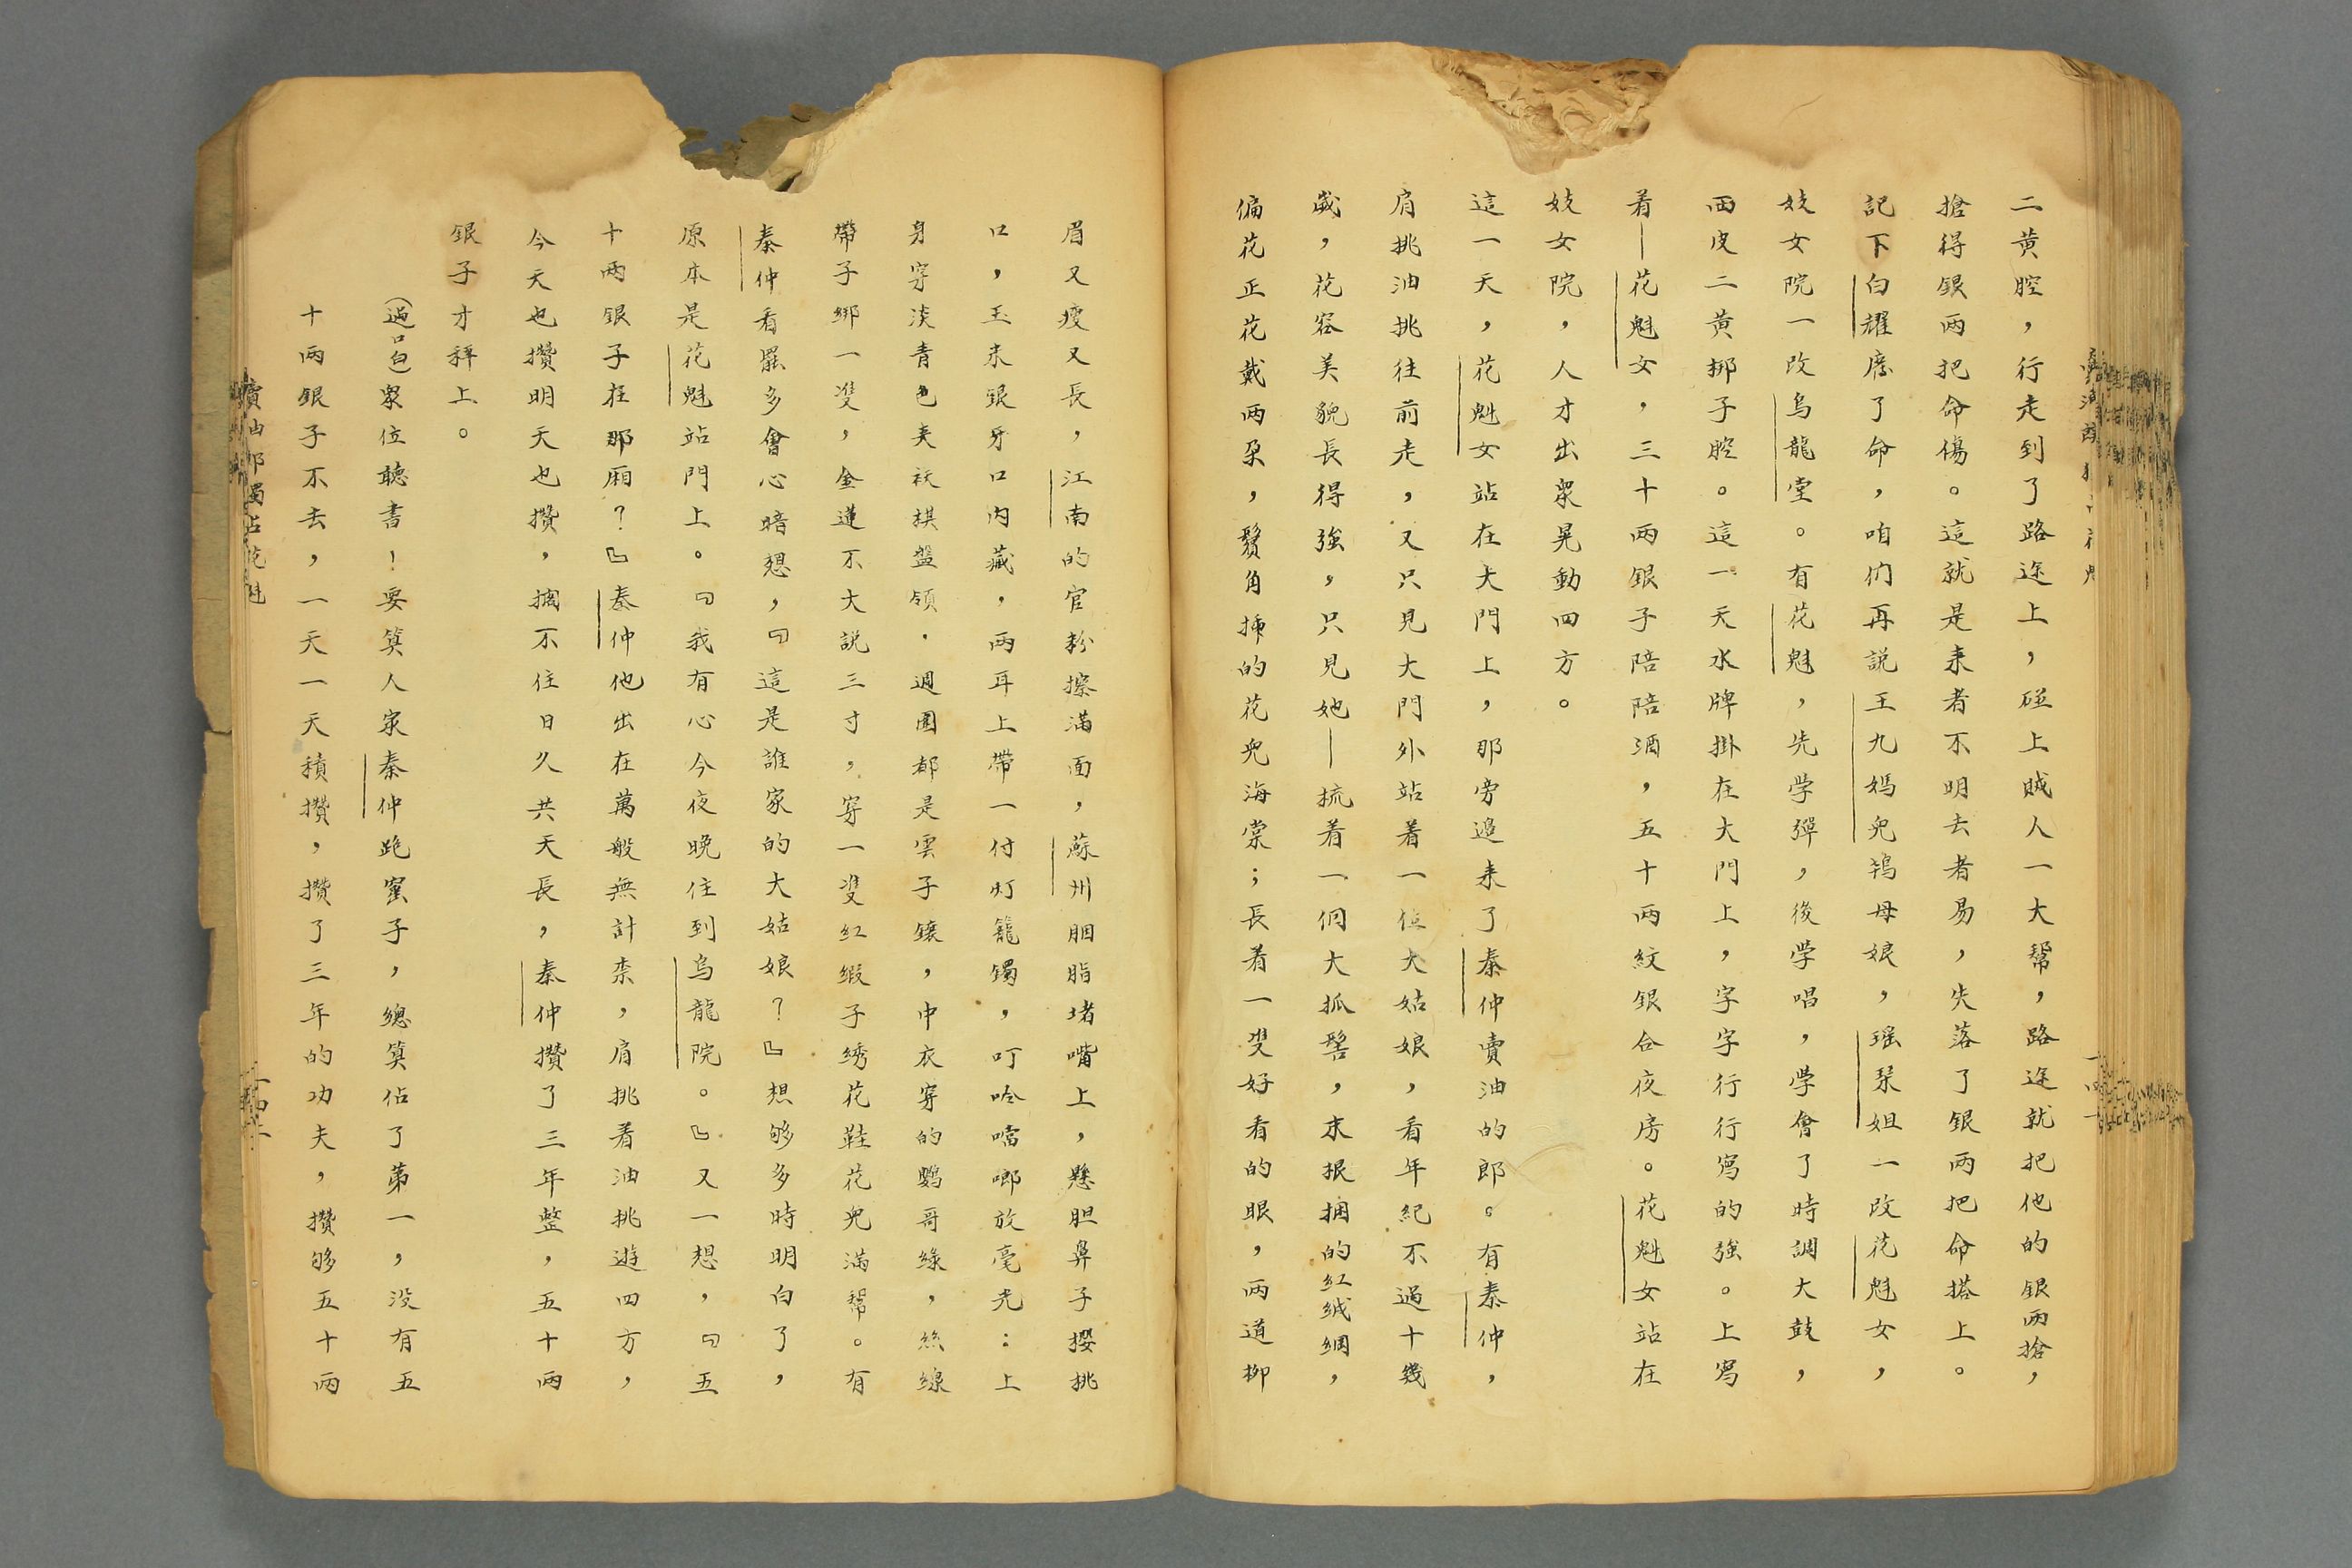 二黄腔，行走到了路途上，碰上賊人一大幫，路途就把他的銀两搶，
搶得銀两把命傷。這就是来者不明去者易，失落了銀两把命搭上。
記下白耀廃了命，咱们再説王九媽兒鸨母娘，瑶琹姐一改花魁女，
妓女院一改烏龍堂。有花魁，先学彈，後学唱，学會了時調大鼓，
西皮二黄梆子腔。這一天水牌掛在大門上，字字行行寫的強。上寫
着—花魁女，三十两銀子陪陪酒，五十两紋銀合夜房。花魁女站在
妓女院，人才出衆晃動四方。
這一天，花魁女站在大門上，那旁邉来了秦仲賣油的郎。有秦仲，
肩挑油挑往前走，又只見大門外站着一位大姑娘，看年紀不過十幾
歲，花容美貌長得強，只見她—梳着一個大抓髻，末根捆的紅絨綢，
偏花正花戴两朶，鬢角插的花兒海棠；長着一雙好看的眼，两道柳
眉又瘦又長，江南的官粉擦满面，蘇州胭脂堵嘴上，懸胆鼻子櫻桃
口，玉米銀牙口内藏，两耳上帶一付灯籠鐲，叮呤噹啷放毫光：上
身穿淡青色夹袄棋盤領．週圍都是雲子鑲，中衣穿的鸚哥綠，絲線
帶子綁一雙，金蓮不大説三寸，穿一雙紅緞子绣花鞋花兒满幫。有
秦仲看罷多會心暗想，『這是誰家的大姑娘？』想够多時明白了，
原本是花魁站門上。『我有心今夜晚住到烏龍院。』又一想，『五
十两銀子在那厢？』秦仲他出在萬般無計柰，肩挑着油挑遊四方，
今天也攢明天也攢，擱不住日久共天長，秦仲攢了三年整，五十两
銀子才秤上。
（過口白）衆位聴書！要箕人家秦仲跑窰子，總箕佔了第一，没有五
十两銀子不去，一天一天積攢，攢了三年的功夫，攢够五十两
賣油郎獨占花魁